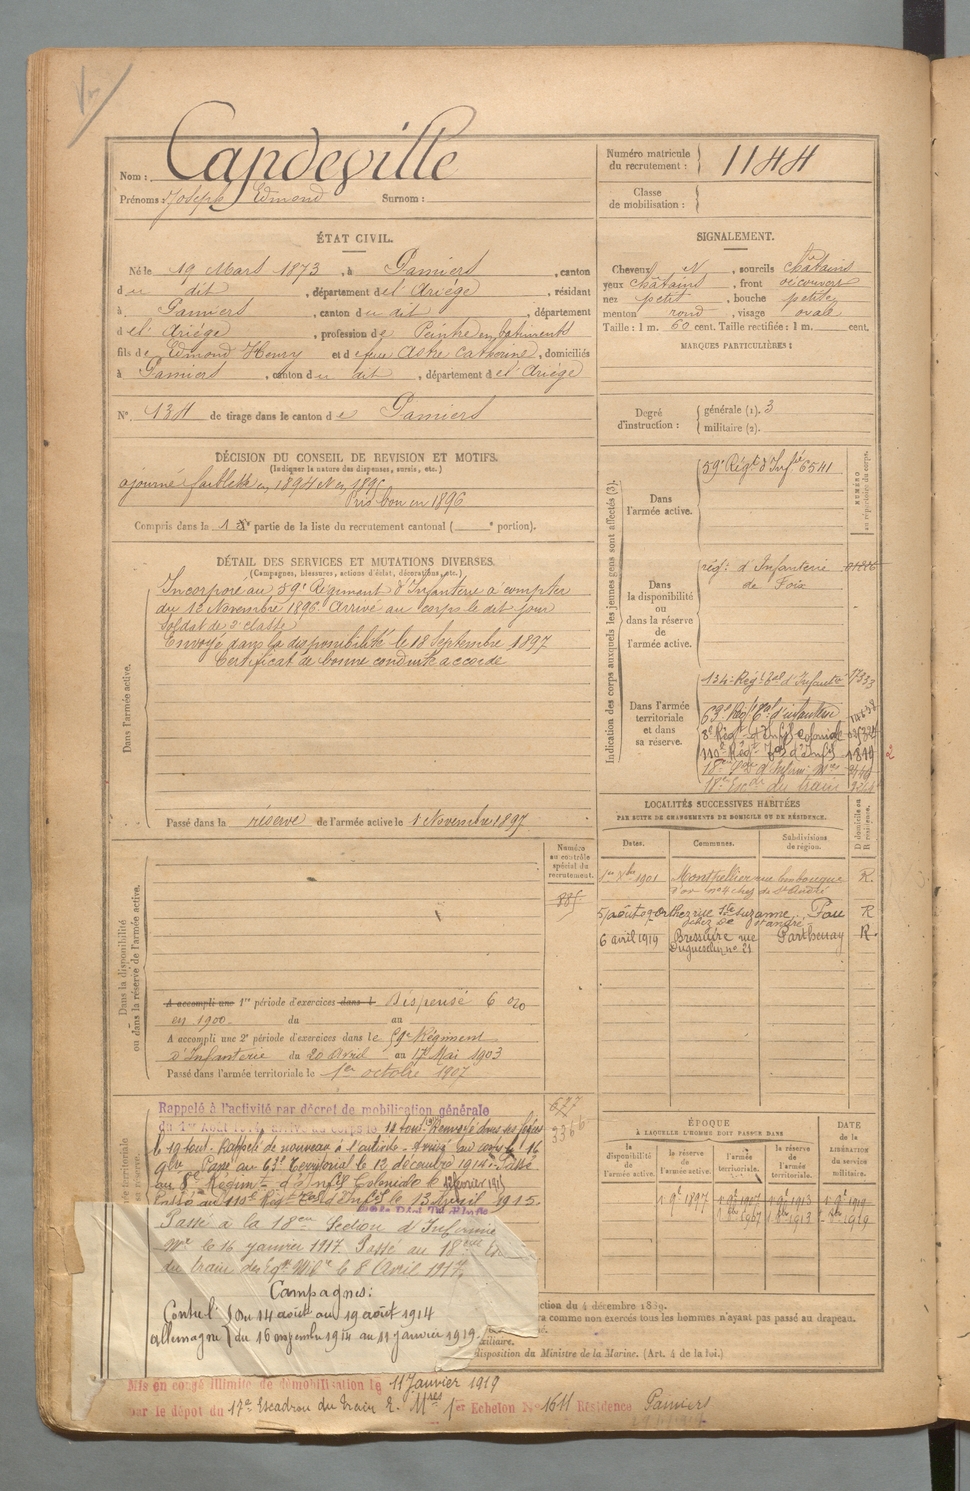 Nom : Capdeville
Prénoms : Joseph Edmond Surnom :
Numéro matricule du recrutement : 1144
Classe de mobilisation :
ÉTAT CIVIL.
Né le 19 Mars 1873, à Pamiers, canton
du dit, département de l'Ariège, résidant
à Pamiers, canton du dit, département
de l'Ariège, profession de Peintre en bâtiments
fils de Edmond Henry et de feue Astre Catherine, domiciliés
à Pamiers, canton du dit, département de l'Ariège
N° 134 de tirage dans le canton de Pamiers
SIGNALEMENT.
Cheveux N, sourcils châtains
yeux châtains, front découvert
nez petit, bouche petite
menton rond, visage ovale
Taille : 1 m. 60 cent. Taille rectifiée : 1 m. cent.
MARQUES PARTICULIÈRES :
Degré d'instruction :
générale (1). 3
militaire (2).
DÉCISION DU CONSEIL DE REVISION ET MOTIFS.
(Indiquer la nature des dispenses, sursis, etc.)
ajourné faiblesse en 1894 et en 1895
Pris bon en 1896
Compris dans la 1re partie de la liste du recrutement cantonal ( e portion).
DÉTAIL DES SERVICES ET MUTATIONS DIVERSES.
(Campagnes, blessures, actions d'éclat, décorations, etc.)
Dans l'armée active.
Incorporé au 59e Régiment d'Infanterie à compter
du 12 Novembre 1896. Arrivé au corps le dit jour
Soldat de 2e classe
Envoyé dans la disponibilité le 18 Septembre 1897
Certificat de bonne conduite accordé
Passé dans la réserve de l'armée active le 1 Novembre 1897
Indication des corps auxquels les jeunes gens sont affectés (3).
NUMÉRO au répertoire du corps.
Dans l'armée active.
59e Régt d'Infie 6541
Dans la disponibilité ou dans la réserve de l'armée active.
régt d'Infanterie
de Foix
Dans l'armée territoriale et dans sa réserve.
134e Régt Tal d'Infanterie 17333
63e Régt Tal d'infanterie
8e Régt d'Infie Coloniale
110e Régt Tal d'Infie 1819
18e Son d'Infirm. Mres
18e Escon du train
2
LOCALITÉS SUCCESSIVES HABITÉES
PAR SUITE DE CHANGEMENTS DE DOMICILE OU DE RÉSIDENCE.
Dates. Communes. Subdivisions de région. D domicile ou R résidence.
1er Xbre 1901 Montpellier rue R.
chez de St André
5 août Orthez rue Ste Suzanne Pau R
chez De St André
6 avril 1919 Bressuire rue Parthenay R.
Duguesclin n° 21
Dans la disponibilité ou dans la réserve de l'armée active.
Numéro au contrôle spécial du recrutement.
885
A accompli une 1re période d'exercices dans l. Dispensé
en 1900 du au
A accompli une 2e période d'exercices dans le 59e Régiment
d'Infanterie du 20 Avril au 17 Mai 1903
Passé dans l'armée territoriale le 1er octobre 1907
677
3366
Rappelé à l'activité par décret de mobilisation générale
du 1er Août 1914, arrivé au corps le 14 août. Renvoyé dans ses foyers
le 19 août. Rappelé de nouveau à l'activité. Arrivé au corps le 16
9bre. Passé au 63e Territorial le 12 décembre 1914. Passé
au 8e Régiment d'Infie Coloniale le février 1915
Passé au 110e Régt Tal d'Infie le 13 Avril 1915.
Passé à la 18eme Section d'Infirmie
Mre le 16 janvier 1917. Passé au 18eme
du train des Eqes Mres le 8 Avril 1917.
Campagnes :
Contre l'Allemagne
Du 14 août au 19 août 1914
du 16 novembre 1914 au 11 janvier 1919.
ÉPOQUE
À LAQUELLE L'HOMME DOIT PASSER DANS
la disponibilité de l'armée active. la réserve de l'armée active. l'armée territoriale. la réserve de l'armée territoriale.
DATE de la LIBÉRATION du service militaire.
1 9bre 1897 1 9bre 1907 1 9bre 1913 1 9bre 1919
1 8bre 1907 1 8bre 1913 1 8bre 1919
ction du 4 décembre 1889.
ra comme non exercés tous les hommes n'ayant pas passé au drapeau.
xiliaire.
disposition du Ministre de la Marine. (Art. 4 de la loi.)
Mis en congé illimité de démobilisation le 11 Janvier 1919
par le dépôt du 17e Escadron du train E. Mres 1er Echelon N° 1611 Résidence Pamiers